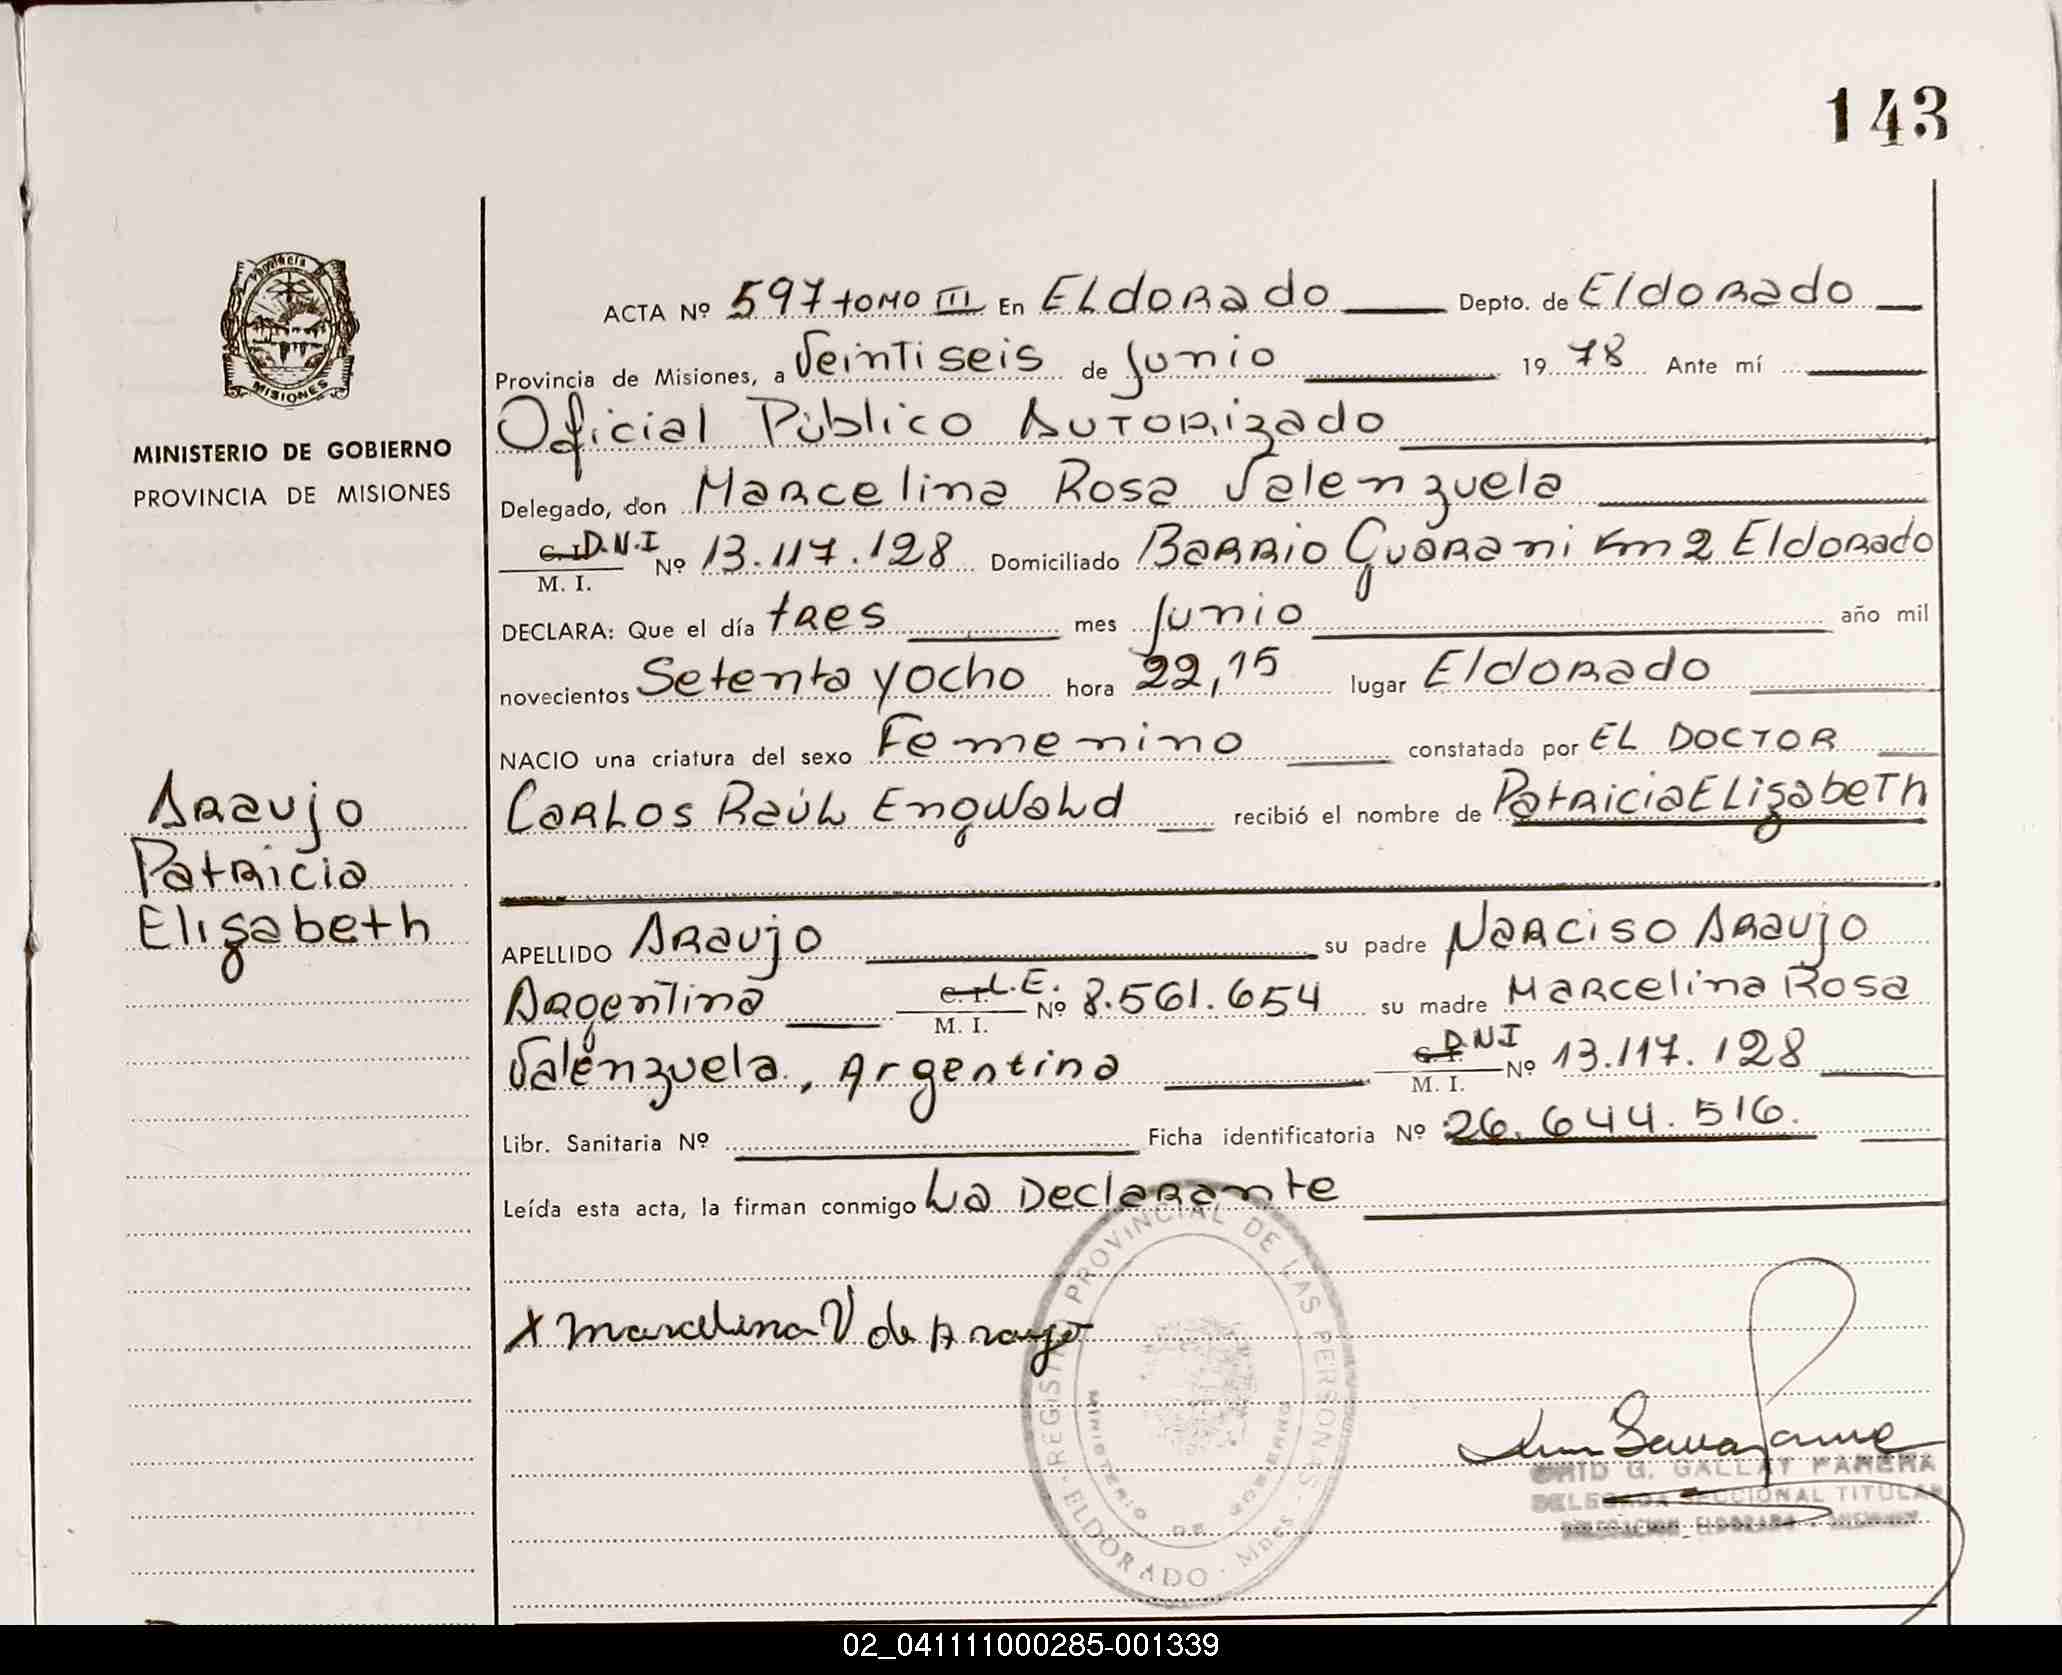 143
Provincia
MISIONES
MINISTERIO DE GOBIERNO
PROVINCIA DE MISIONES
ACTA Nº 597 tomo III En ELdorado Depto. de Eldorado
Provincia de Misiones, a Veintiseis de Junio 19 78 Ante mí
Oficial Público Autorizado
Delegado, don Marcelina Rosa Valenzuela
C. I. D.N.I
M. I. Nº 13.117.128 Domiciliado Barrio Guarani Km 2 Eldorado
DECLARA: Que el día tres mes Junio año mil
novecientos Setenta y ocho hora 22,15 lugar Eldorado
NACIO una criatura del sexo Femenino constatada por EL DOCTOR
Carlos Raúl Engwald recibió el nombre de Patricia Elizabeth
Araujo
Patricia
Elizabeth
APELLIDO Araujo su padre Narciso Araujo
Argentina C. I. L.E. M. I. Nº 8.561.654 su madre Marcelina Rosa
Valenzuela, Argentina C. I. DNI M. I. Nº 13.117.128
Libr. Sanitaria Nº Ficha identificatoria Nº 26.644.516.
Leída esta acta, la firman conmigo La Declarante
X Marcelina V de Araujo
REGISTRO PROVINCIAL DE LAS PERSONAS
MINISTERIO DE GOBIERNO
ELDORADO - Mnes
G. GALLAY PARERA
DELEGADA SECCIONAL TITULAR
DELEGACION ELDORADO - MISIONES
02_041111000285-001339